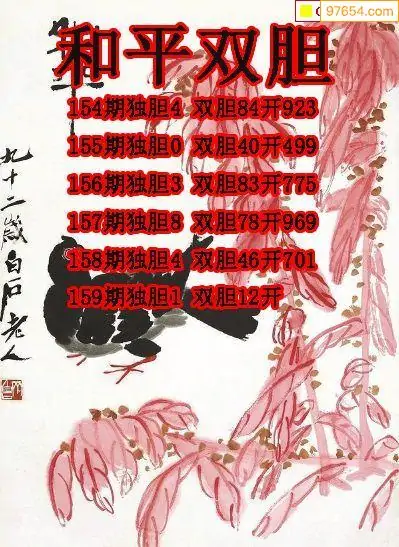 97654.com
和平双胆
154期独胆4 双胆84开923
155期独胆0 双胆40开499
156期独胆3 双胆83开775
157期独胆8 双胆78开969
158期独胆4 双胆46开701
159期独胆1 双胆12开
九十二岁白石老人